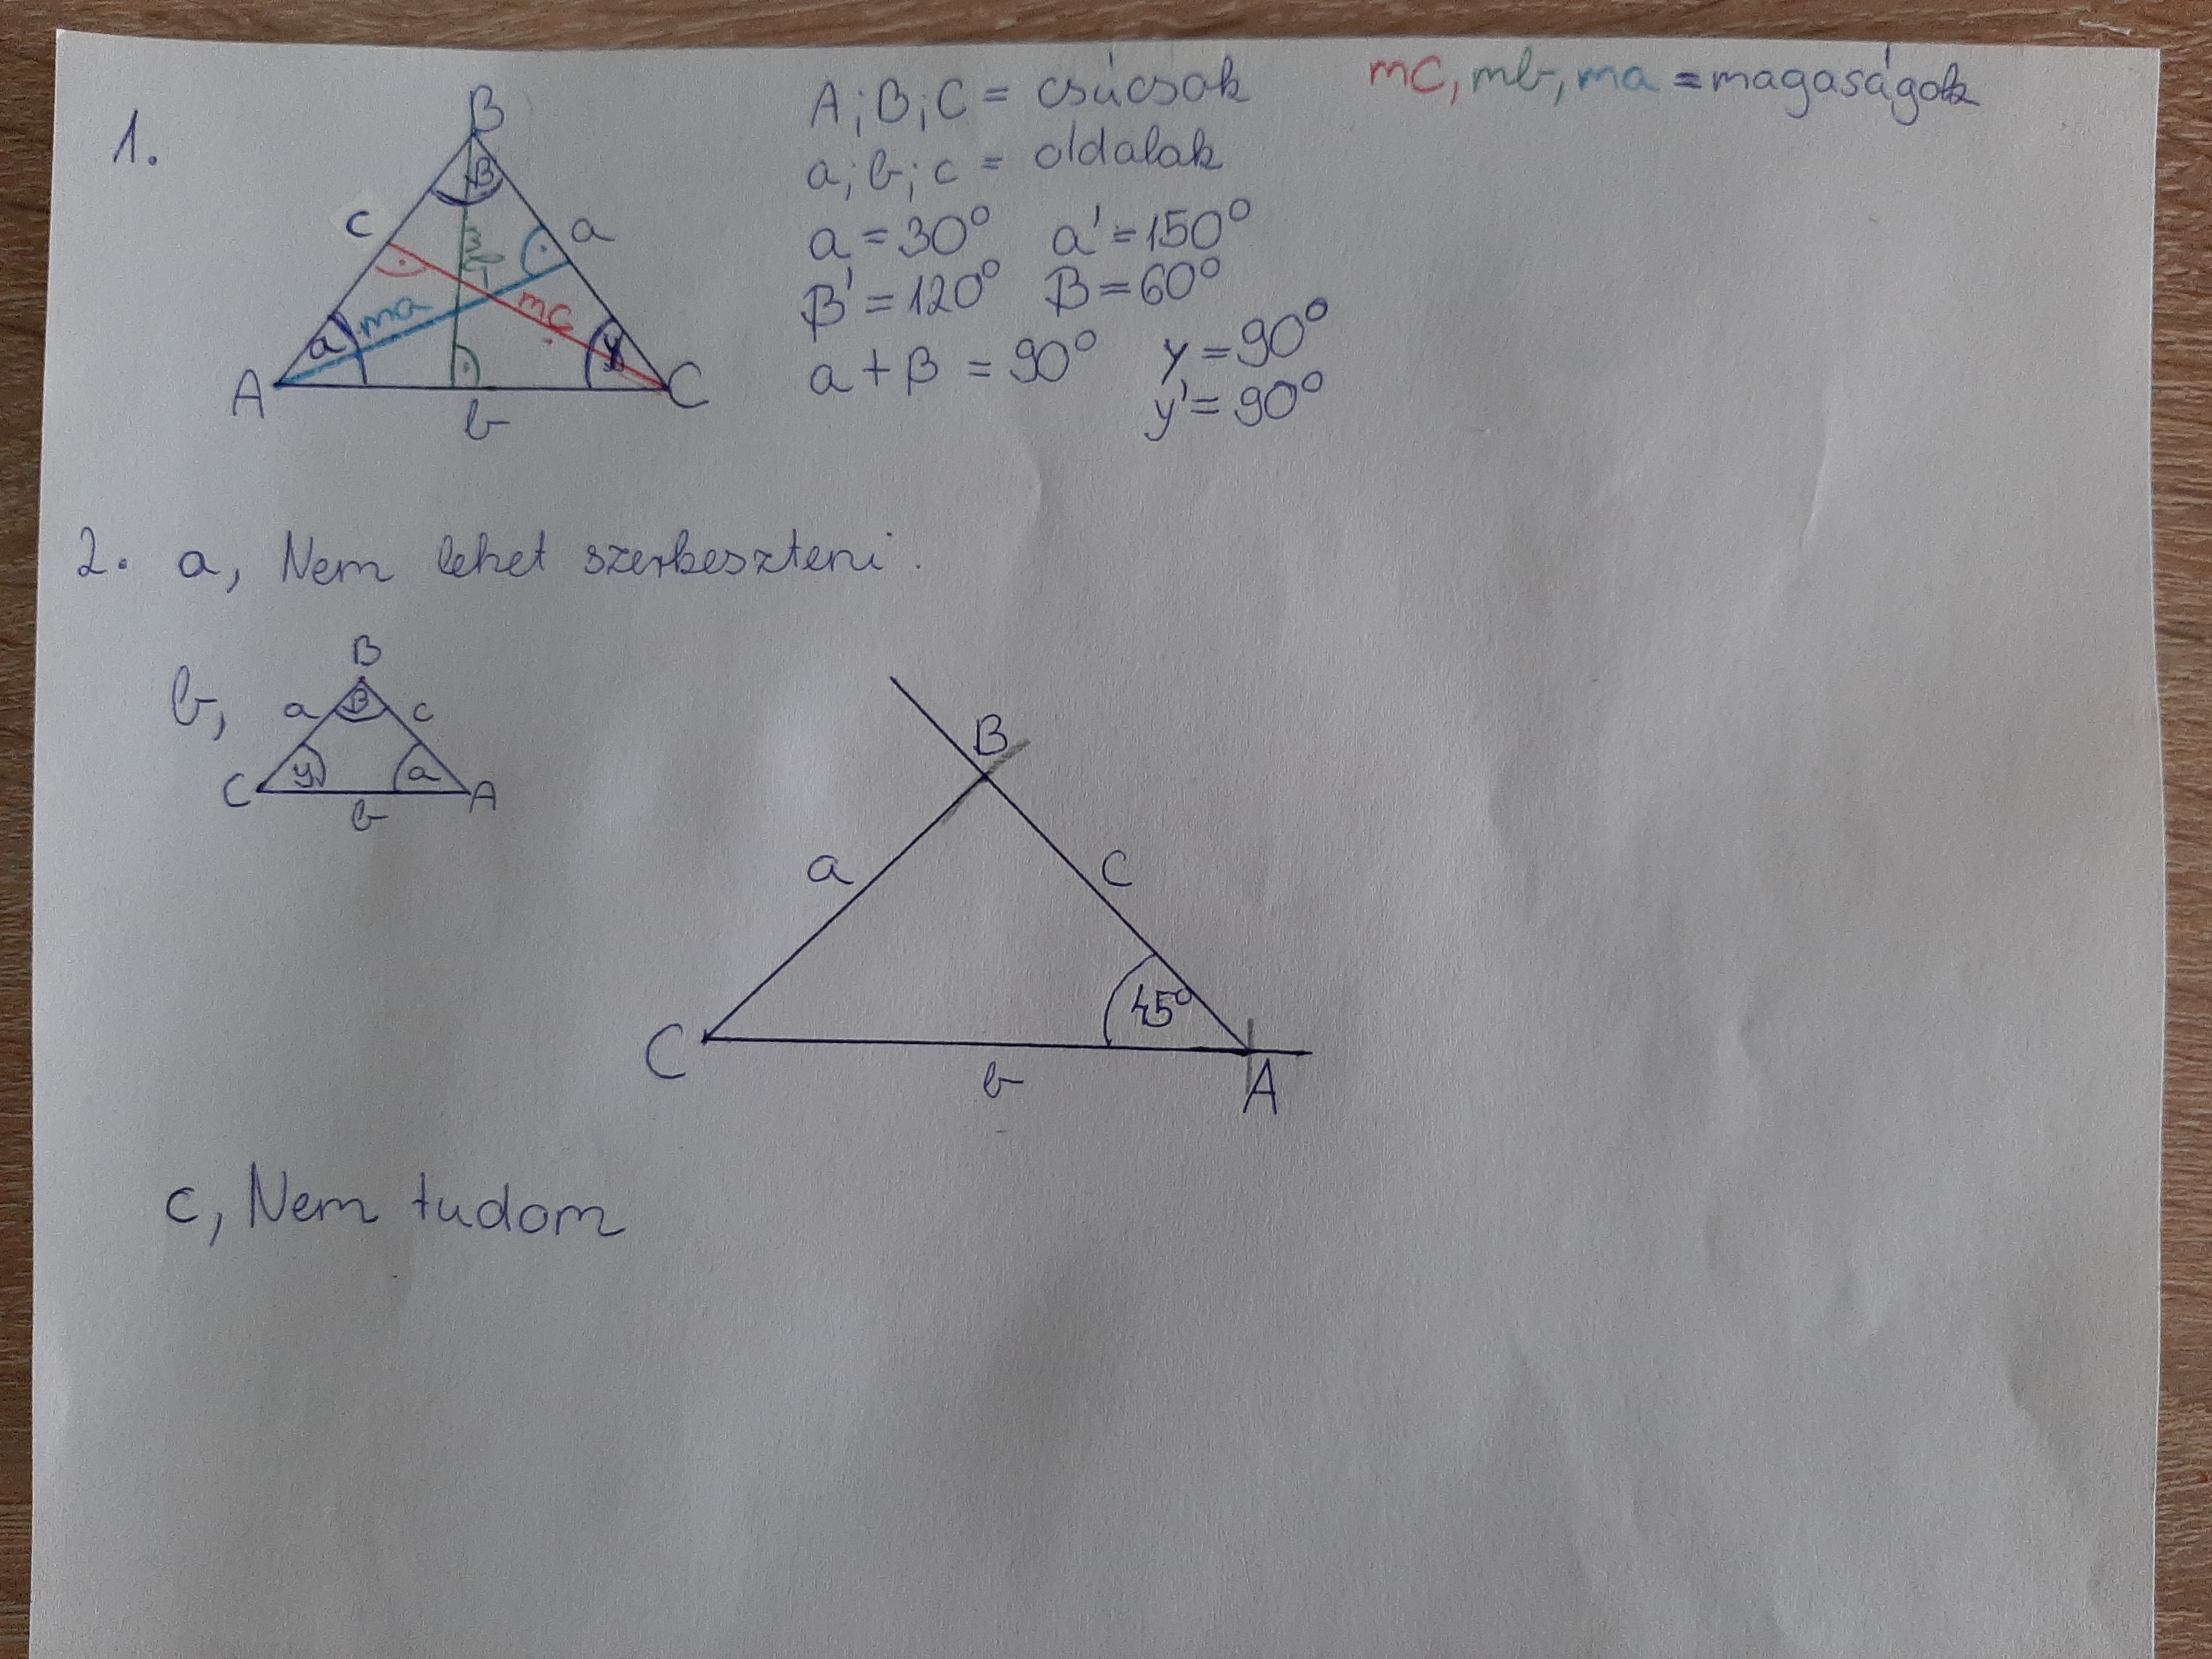 1.
B
β
c
a
mb
ma
mc
a
y
A
C
b
A; B; C = csúcsok
a; b; c = oldalak
a = 30° a' = 150°
B' = 120° B = 60°
a + β = 90° y = 90°
y' = 90°
mc, mb, ma = magaságok
2. a, Nem lehet szerkeszteni.
b,
B
a β c
C y a A
b
B
a c
45°
C b A
c, Nem tudom